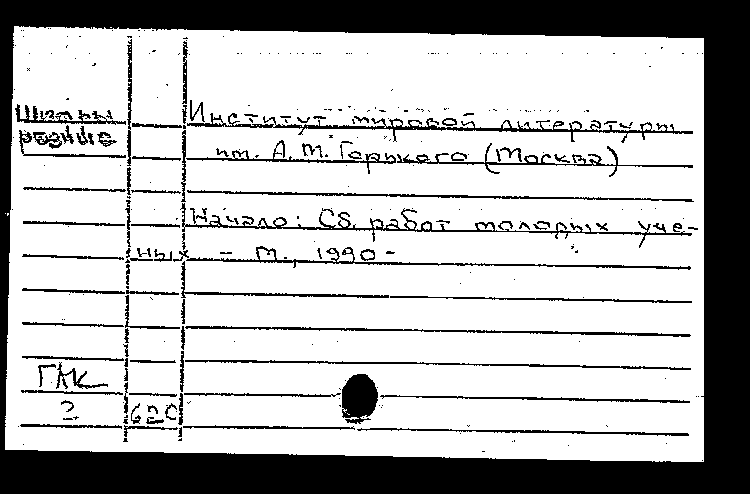 Шифры
разные
Институт мировой литературы
им. А.М. Горького (Москва)
Начало: Сб. работ молодых уче-
ных – М., 1990 -
ГАК
2 620